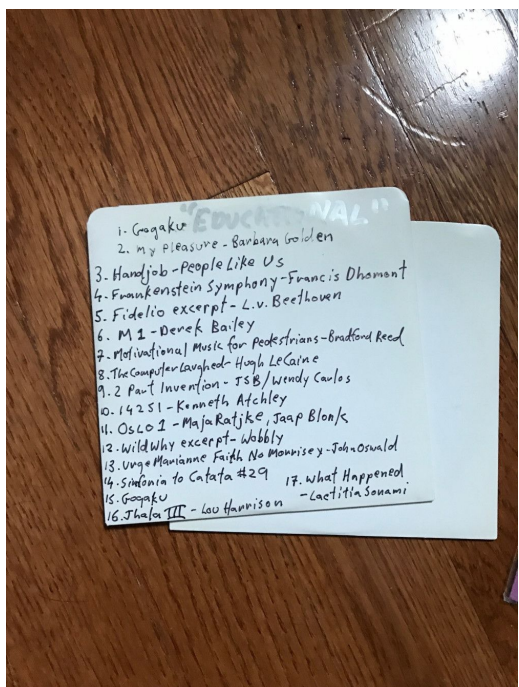 "EDUCATIONAL"
1. Gogaku
2. my pleasure - Barbara Golden
3. Handjob - People Like Us
4. Frankenstein Symphony - Francis Dhomont
5. Fidelio excerpt - L.v. Beethoven
6. M1 - Derek Bailey
7. Motivational Music for Pedestrians - Bradford Reed
8. The Computer Laughed - Hugh LeCaine
9. 2 Part Invention - JSB/Wendy Carlos
10. 14251 - Kenneth Atchley
11. Oslo 1 - Maja Ratjke, Jaap Blonk
12. Wild Why excerpt - Wobbly
13. Urge Marianne Faith No Morrisey - John Oswald
14. Sinfonia to Catata #29
15. Gogaku
16. Jhala III - Lou Harrison
17. What Happened
- Laetitia Sonami